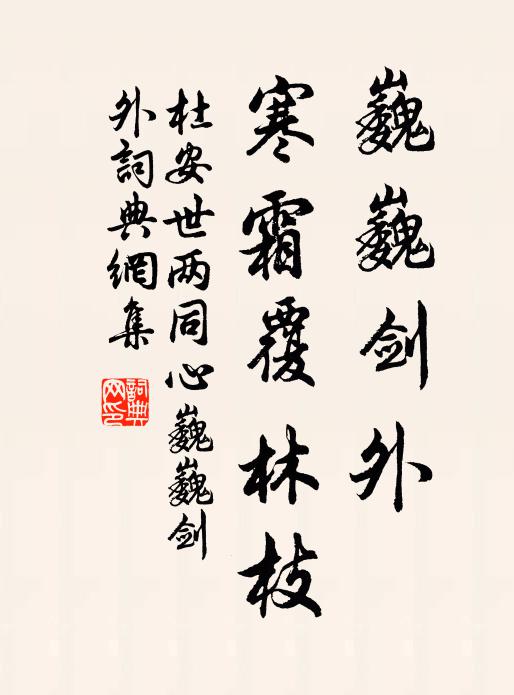 巍巍剑外
寒霜覆林枝
杜安世两同心巍巍剑
外詞典網集
詞典网印